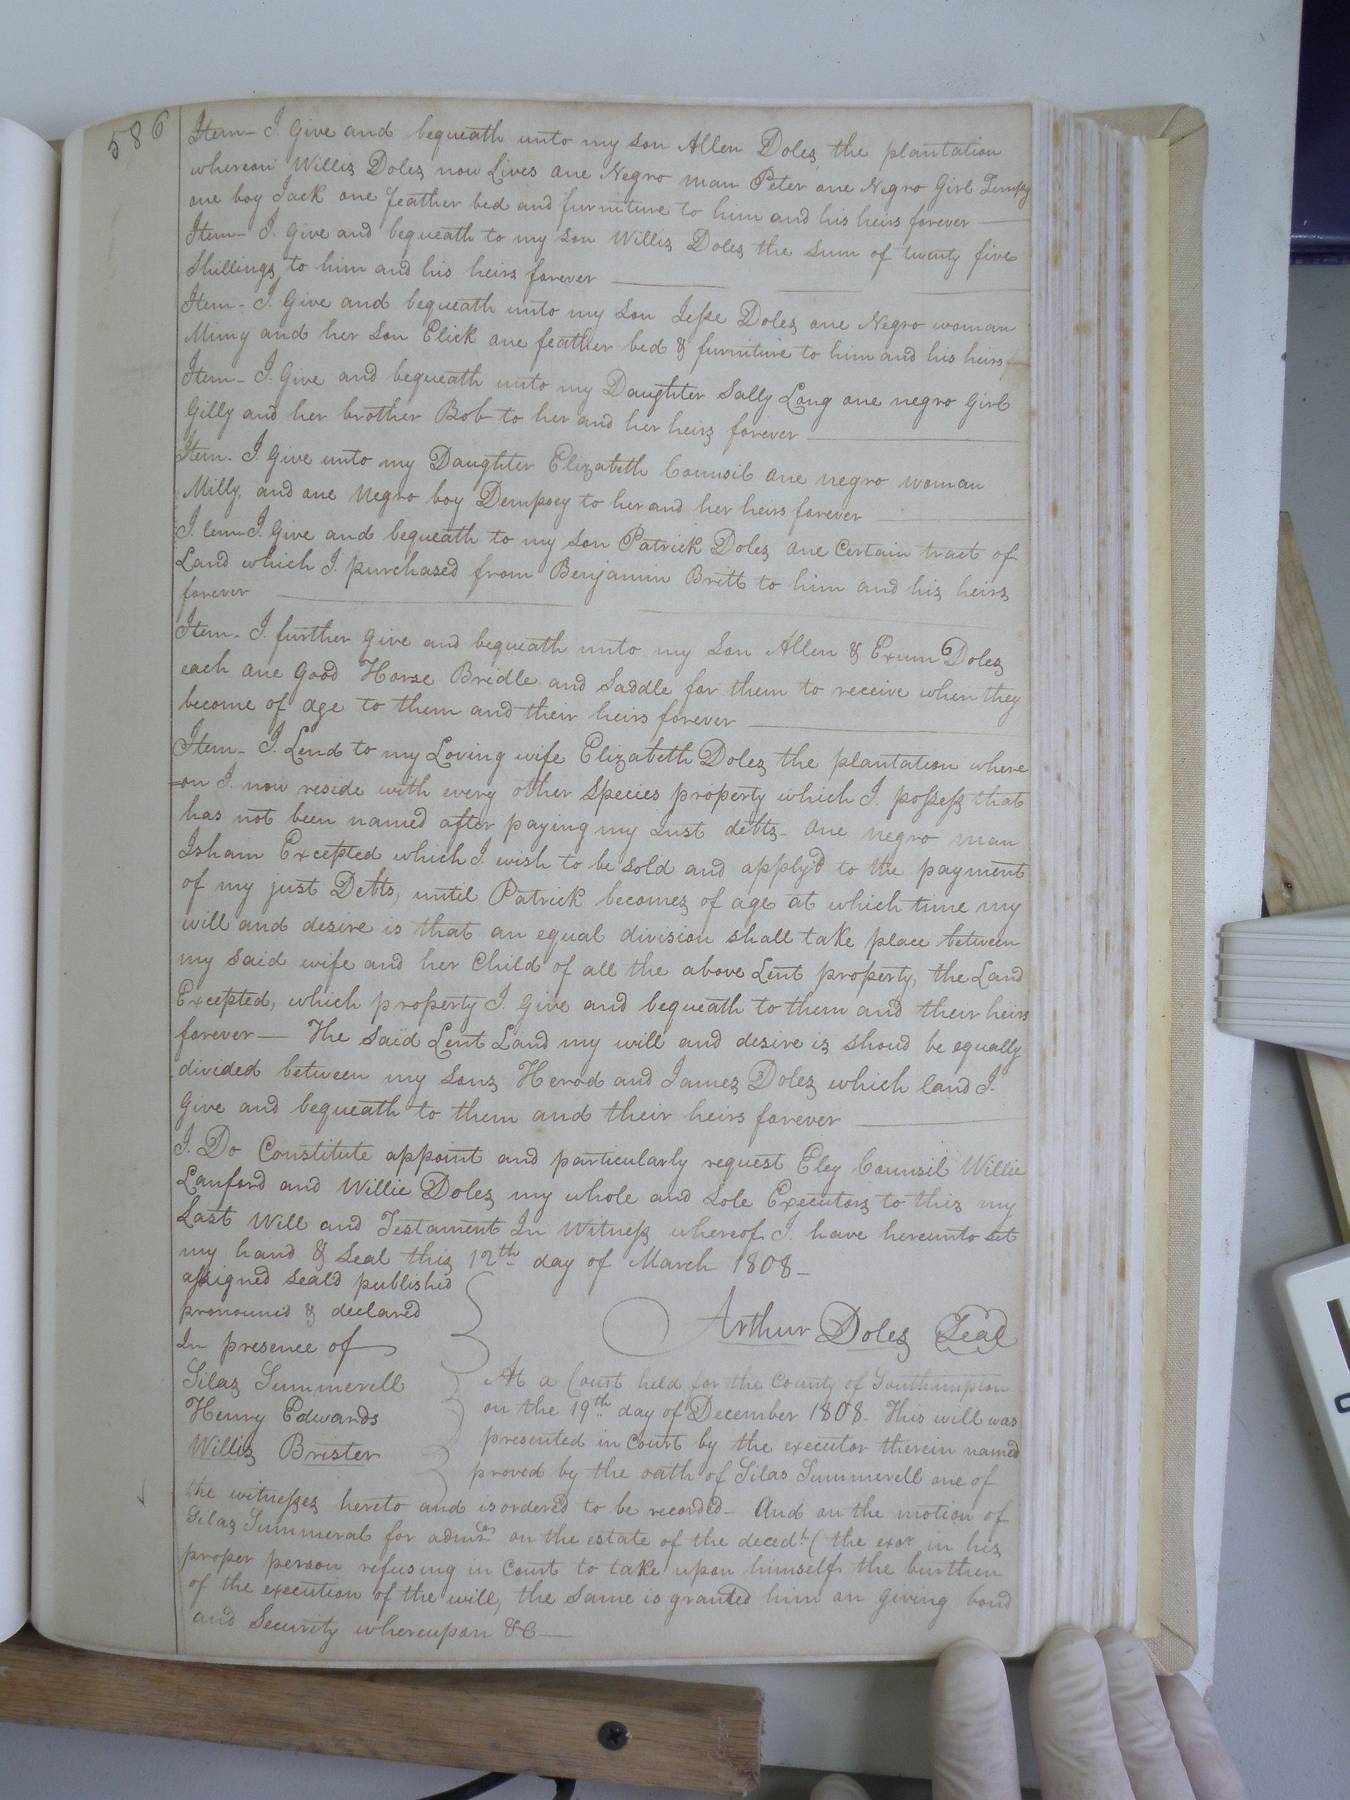 586
Item - I. Give and bequeath unto my son Allen Doles the plantation
whereon Willis Doles now Lives one Negro man Peter one Negro Girl Tempy
one boy Jack one feather bed and furniture to him and his heirs forever
Item - I. Give and bequeath to my son Willis Doles the sum of twenty five
Shillings to him and his heirs forever
Item - I. Give and bequeath unto my son Jesse Doles one Negro woman
Mimy and her son Elick one feather bed & furniture to him and his heirs f
Item - I. Give and bequeath unto my Daughter Sally Long one negro Girl
Gilly and her brother Bob to her and her heirs forever
Item. I. Give unto my Daughter Elizabeth Counsil one negro woman
Milly, and one Negro boy Dempsey to her and her heirs forever
Item - I. Give and bequeath to my son Patrick Doles one Certain tract of
Land which I purchased from Benjamin Britt to him and his heirs
forever
Item - I. further Give and bequeath unto my son Allen & Exum Doles
each one Good Horse Bridle and Saddle for them to receive when they
become of age to them and their heirs forever
Item - I. Lend to my Loving wife Elizabeth Doles the plantation where
=on I. now reside with every other Species property which I. possess that
has not been named after paying my Just debts - one negro man
Isham Excepted which I wish to be sold and apply'd to the payment
of my just Debts, until Patrick becomes of age at which time my
will and desire is that an equal division shall take place between
my said wife and her Child of all the above Lent property, the Land
Excepted, which property I. Give and bequeath to them and their heirs
forever — The said Lent Land my will and desire is shoud be equally
divided between my sons Herod and James Doles which land I.
Give and bequeath to them and their heirs forever
I. Do Constitute appoint and particularly request Eley Counsil Willie
Lanford and Willie Doles my whole and Sole Executors to this my
Last Will and Testament In Witness whereof I. have hereunto set
my hand & Seal this 12th day of March 1808 -
assigned seald published
pronouned & declared
In presence of
Arthur Doles Seal
Silas Summerell
Henry Edwards
Willis Brister
At a Court held for the County of Southampton
on the 19th day of December 1808. This will was
presented in Court by the executor therein named
proved by the oath of Silas Summerell one of
the witnesses hereto and is ordered to be recorded - And on the motion of
Silas Summeral for admr on the estate of the decedt. (the exor in his
proper person refusing in Court to take upon himself the burthen
of the execution of the will, the same is granted him on giving bond
and Security whereupon &C —